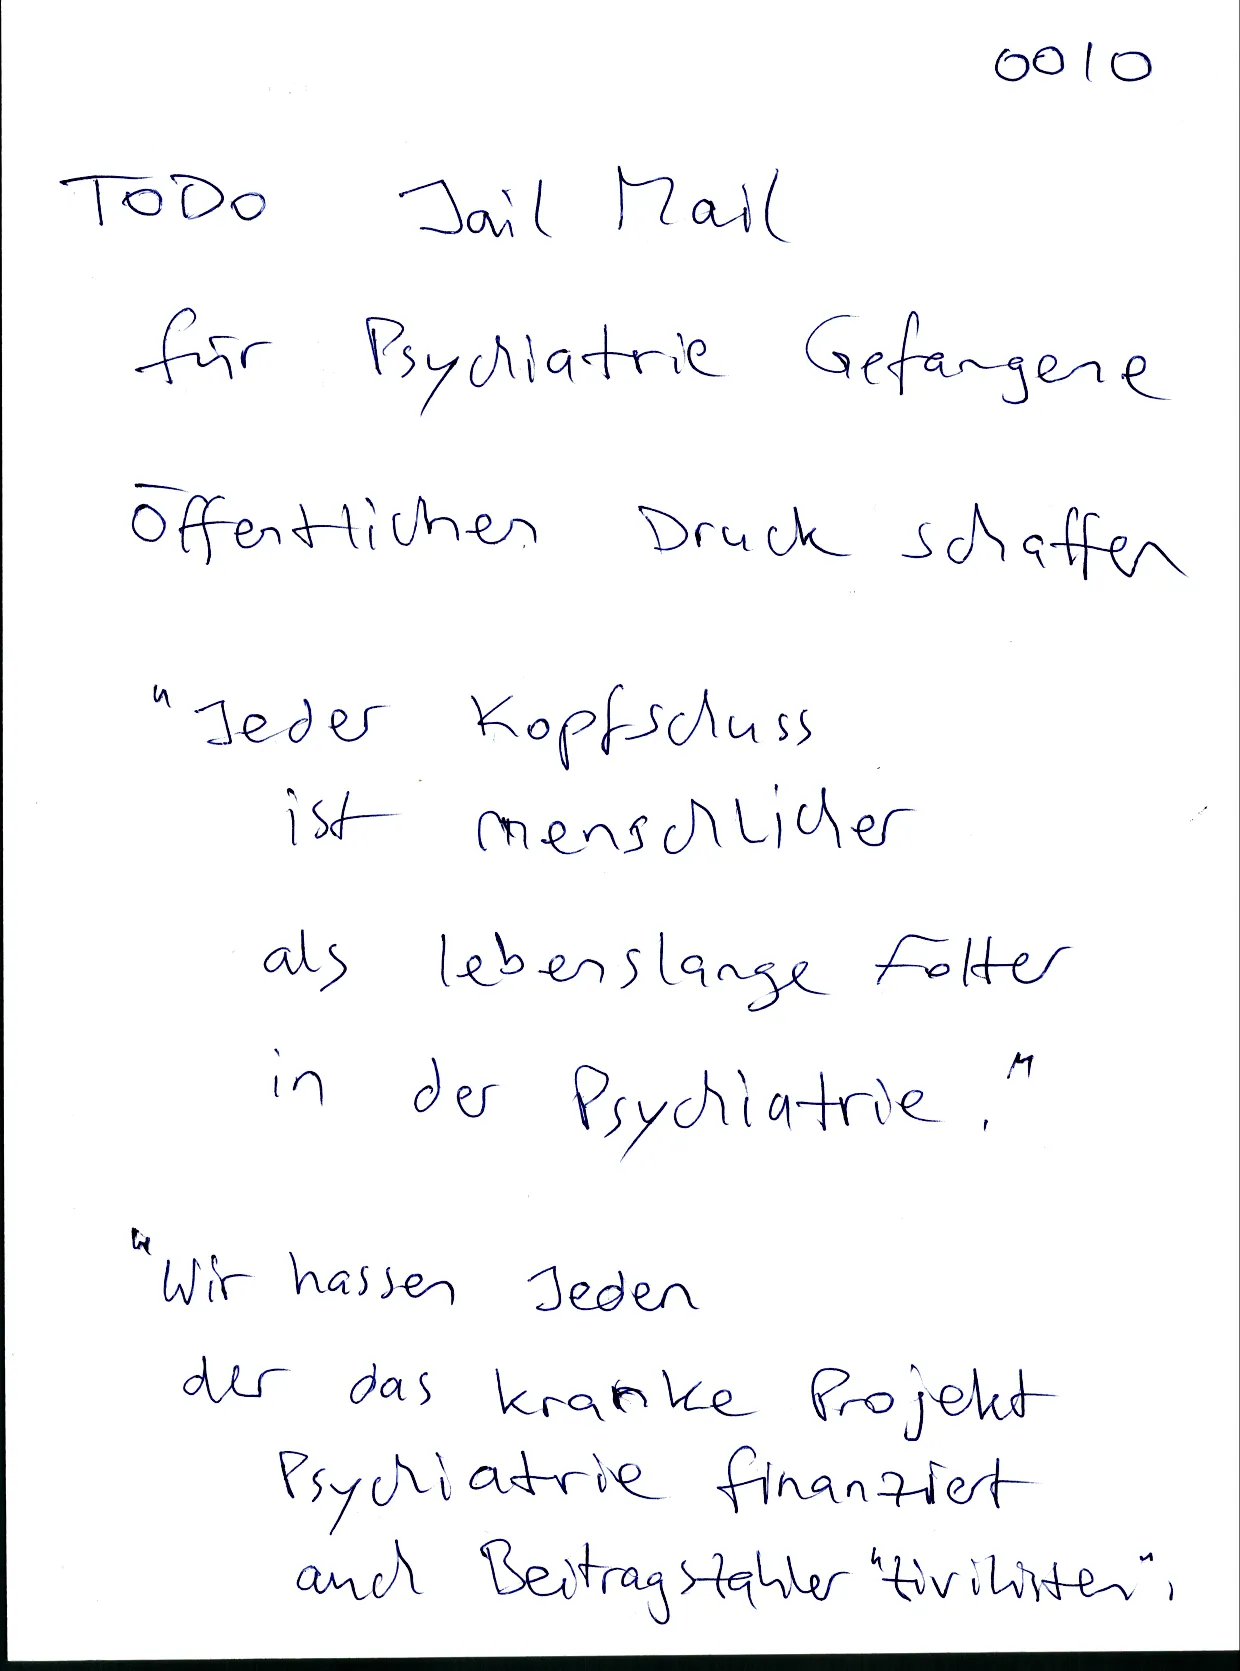 0010
ToDo Jail Mail
für Psychiatrie Gefangene
Öffentlichen Druck schaffen
"Jeder Kopfschuss
ist menschlicher
als lebenslange Folter
in der Psychiatrie."
"Wir hassen Jeden
der das kranke Projekt
Psychiatrie finanziert
auch Beitragszahler "Zivilisten".